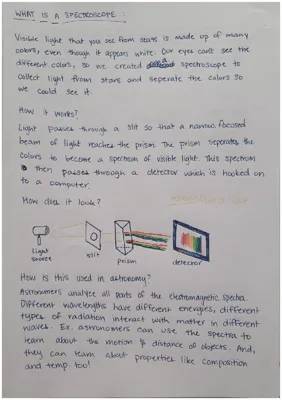 WHAT IS A SPECTROSCOPE :
Visible light that you see from stars is made up of many
colors, even though it appears white. Our eyes can't see the
different colors, so we created a spectroscope to
collect light from stars and seperate the colors so
we could see it.
How it works?
Light passes through a slit so that a narrow, focused
beam of light reaches the prism. The prism seperates the
colors to become a spectrum of visible light. This spectrum
is then passes through a detector which is hooked on
to a computer.
How does it look?
light
source
slit
prism
detector
How is this used in astronomy?
Astronomers analyze all parts of the electromagnetic spectra.
Different wavelengths have different energies, different
types of radiation interact with matter in different
waves. Ex. astronomers can use the spectra to
learn about the motion & distance of objects. And,
they can learn about properties like composition
and temp. too!